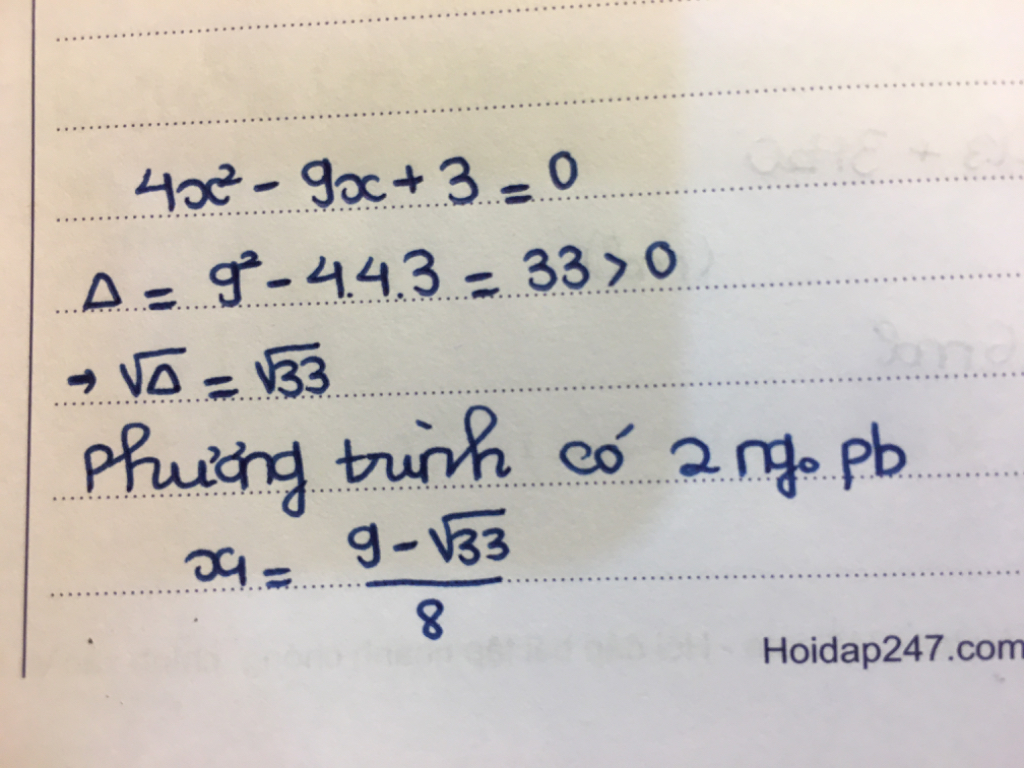 4x² - 9x + 3 = 0
Δ = 9² - 4.4.3 = 33 > 0
→ √Δ = √33
Phương trình có 2 ng. pb
x₁ = (9 - √33)/8
Hoidap247.com